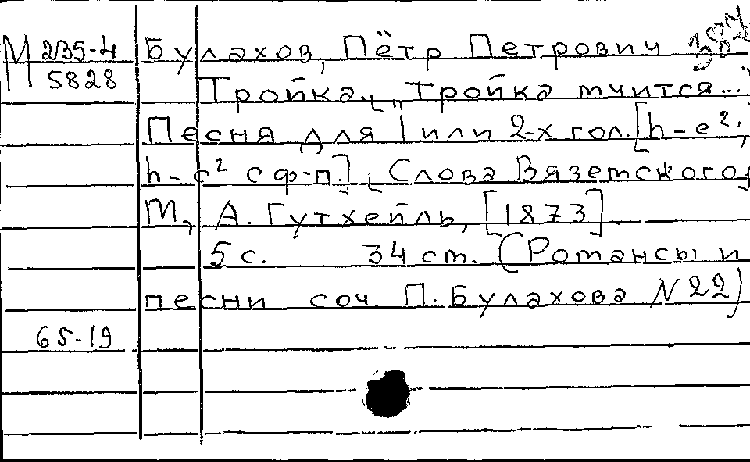 М 235-4
5828
Булахов, Пётр Петрович
Тройка. „Тройка мчится..."
Песня для 1 или 2-х гол. [h-e²;
h-c² с ф-п.] Слова Вяземского,
М., А. Гутхейль, [1873]
5 с. 34 см. (Романсы и
песни соч. П. Булахова N 22)
65-19